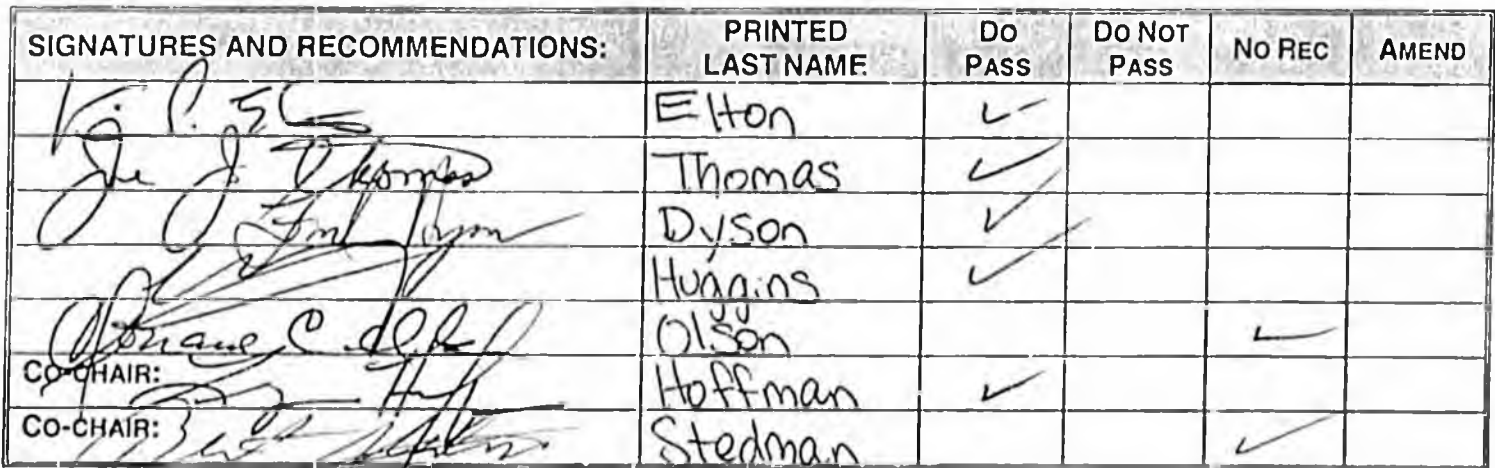 SIGNATURES AND RECOMMENDATIONS: PRINTED LAST NAME DO PASS DO NOT PASS NO REC AMEND
Elton ✓
Joe J. Thomas Thomas ✓
Dyson ✓
Huggins ✓
Olson ✓
CO-CHAIR: Hoffman ✓
CO-CHAIR: Stedman ✓